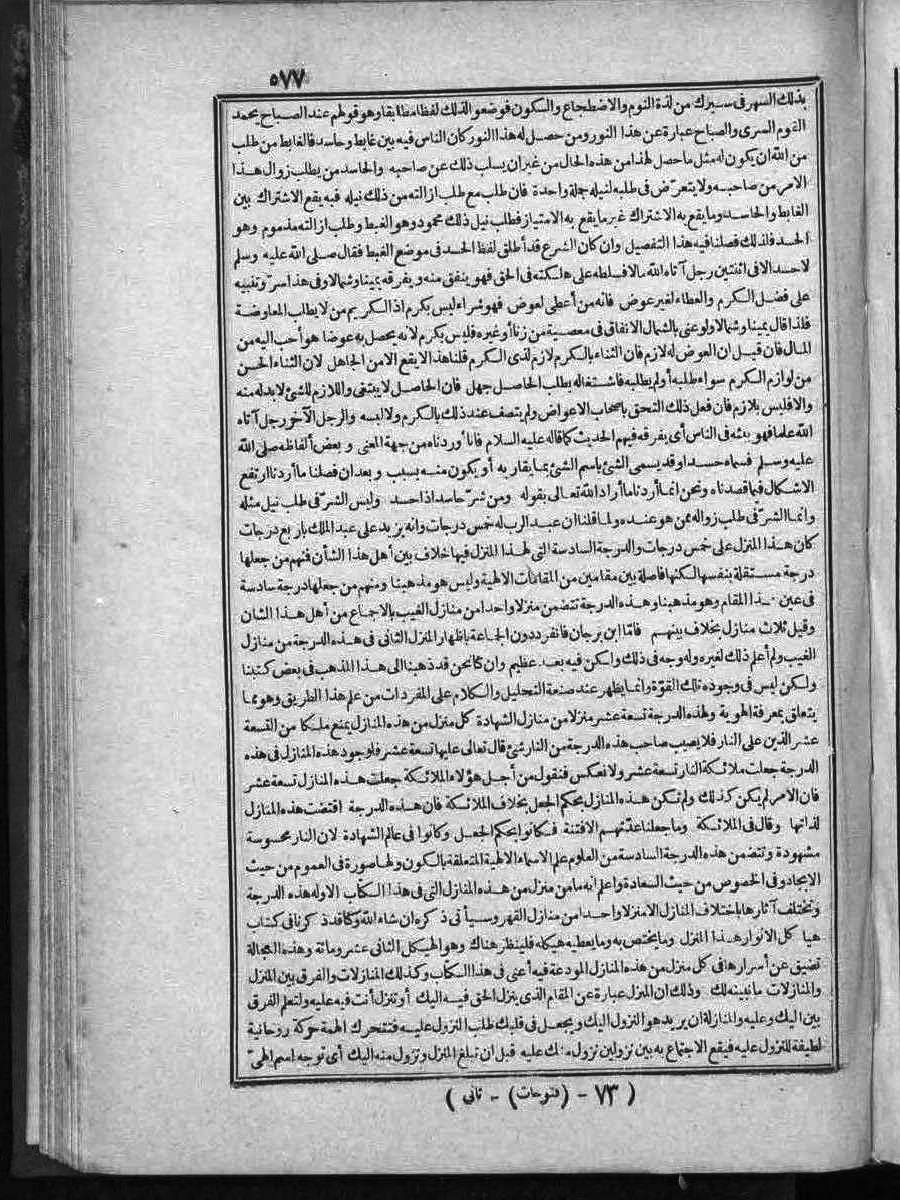 ٥٧٧
بذلك السهر في سيرك من لذة النوم والاضطجاع والسكون فوضعوا لذلك لفظا مطابقا وهو قولهم عند الصباح يحمد
القوم السرى والصباح عبارة عن هذا النور ومن حصل له هذا النور كان الناس فيه بين غابط وحاسد فالغابط من طلب
من الله ان يكون له مثل ما حصل لهذا من هذه الحال من غير ان يسلب ذلك عن صاحبه والحاسد من يطلب زوال هذا
الامر من صاحبه ولا يتعرّض في طلبه لنيله جملة واحدة فان طلب مع طلب ازالته من ذلك نيله فبه يقع الاشتراك بين
الغابط والحاسد وما يقع به الاشتراك غير ما يقع به الامتياز فطلب نيل ذلك محمود وهو الغبط وطلب ازالته مذموم وهو
الحسد فلذلك فصلنا فيه هذا التفصيل وان كان الشرع قد أطلق لفظ الحسد في موضع الغبط فقال صلى الله عليه وسلم
لا حسد الا في اثنتين رجل آتاه الله مالا فسلطه على هلكته في الحق فهو ينفق منه ويفرقه يمينا وشمالا وفي هذا سرّ وتنبيه
على فضل الكرم والعطاء لغير عوض فانه من أعطى لعوض فهو شراء ليس بكرم اذ الكريم من لا يطلب المعاوضة
فلذا قال يمينا وشمالا ولو عنى بالشمال الانفاق في معصية من زنا أو غيره فليس بكرم لانه يحصل به عوضا هو أحب اليه من
المال فان قيل ان العوض له لازم فان الثناء بالكرم لازم لذي الكرم قلنا هذا لا يقع الا من الجاهل لان الثناء الحسن
من لوازم الكرم سواء طلبه أو لم يطلبه فاشتغاله بطلب الحاصل جهل فان الحاصل لا يبتغى واللازم للشئ لا بد له منه
والا فليس بلازم فان فعل ذلك التحق باصحاب الاعواض ولم يتصف عند ذلك بالكرم ولا لبسه والرجل الآخر رجل آتاه
الله علما فهو يبثه في الناس أي يفرقه فيهم الحديث كما قاله عليه السلام فانا أوردناه من جهة المعنى وبعض ألفاظه صلى الله
عليه وسلم فسماه حسدا وقد يسمى الشئ باسم الشئ بما يقاربه أو يكون منه بسبب وبعد ان فصلنا ما أردنا ارتفع
الاشكال فيما قصدناه ونحن انما أردنا ما أراد الله تعالى بقوله ومن شرّ حاسد اذا حسد وليس الشرّ في طلب نيل مثله
وانما الشرّ في طلب زواله ممن هو عنده ولما قلنا ان عبد الرب له خمس درجات وانه يزيد على عبد الملك باربع درجات
كان هذا المنزل على خمس درجات والدرجة السادسة التي لهذا المنزل فيها خلاف بين أهل هذا الشأن فمنهم من جعلها
درجة مستقلة بنفسها لكنها فاصلة بين مقامين من المقامات الالهية وليس هو مذهبنا ومنهم من جعلها درجة سادسة
في عين هذا المقام وهو مذهبنا وهذه الدرجة تتضمن منزلا واحدا من منازل الغيب بالاجماع من أهل هذا الشان
وقيل ثلاث منازل بخلاف بينهم فاما ابن برجان فانفرد دون الجماعة باظهار المنزل الثاني في هذه الدرجة من منازل
الغيب ولم أعلم ذلك لغيره وله وجه في ذلك ولكن فيه بعد عظيم وان كنا نحن قد ذهبنا الى هذا المذهب في بعض كتبنا
ولكن ليس في وجوده تلك القوّة وانما يظهر عند صنعة التحليل والكلام على المفردات من علم هذا الطريق وهو مما
يتعلق بمعرفة الهوية ولهذه الدرجة تسعة عشر منزلا من منازل الشهادة كل منزل من هذه المنازل يمنع ملكا من التسعة
عشر الذين على النار فلا يصيب صاحب هذه الدرجة من النار شئ قال تعالى عليها تسعة عشر فلوجود هذه المنازل في هذه
الدرجة جعلت ملائكة النار تسعة عشر ولا نعكس فنقول من أجل هؤلاء الملائكة جعلت هذه المنازل تسعة عشر
فان الامر لم يكن كذلك ولم تكن هذه المنازل بحكم الجعل بخلاف الملائكة فان هذه الدرجة اقتضت هذه المنازل
لذاتها وقال في الملائكة وما جعلنا عدّتهم الا فتنة فكانوا بحكم الجعل وكانوا في عالم الشهادة لان النار محسوسة
مشهودة وتتضمن هذه الدرجة السادسة من العلوم علم الاسماء الالهية المتعلقة بالكون ولها صورة في العموم من حيث
الايجاد وفي الخصوص من حيث السعادة واعلم انه ما من منزل من هذه المنازل التي في هذا الكتاب الا وله هذه الدرجة
وتختلف آثارها باختلاف المنازل الا منزلا واحدا من منازل القهر وسيأتي ذكره ان شاء الله وكنا قد ذكرنا في كتاب
هياكل الانوار هذا المنزل وما يختص به وما يعطيه هيكله فلينظر هناك وهو الهيكل الثاني عشر ومائة وهذه العجالة
تضيق عن أسرارها في كل منزل من هذه المنازل المودعة فيه أعنى في هذا الكتاب وكذلك المنازلات والفرق بين المنزل
والمنازلات ما نبينه لك وذلك ان المنزل عبارة عن المقام الذي ينزل الحق فيه اليك أو تنزل أنت فيه عليه ولتعلم الفرق
بين اليك وعليه والمنازلة ان يريد هو النزول اليك ويجعل في قلبك طلب النزول عليه فتتحرك الهمة حركة روحانية
لطيفة للنزول عليه فيقع الاجتماع به بين نزولين نزول منك عليه قبل ان تبلغ المنزل ونزول منه اليك أي توجه اسم الهيّ
( ٧٣ - (فتوحات) - ثاني )